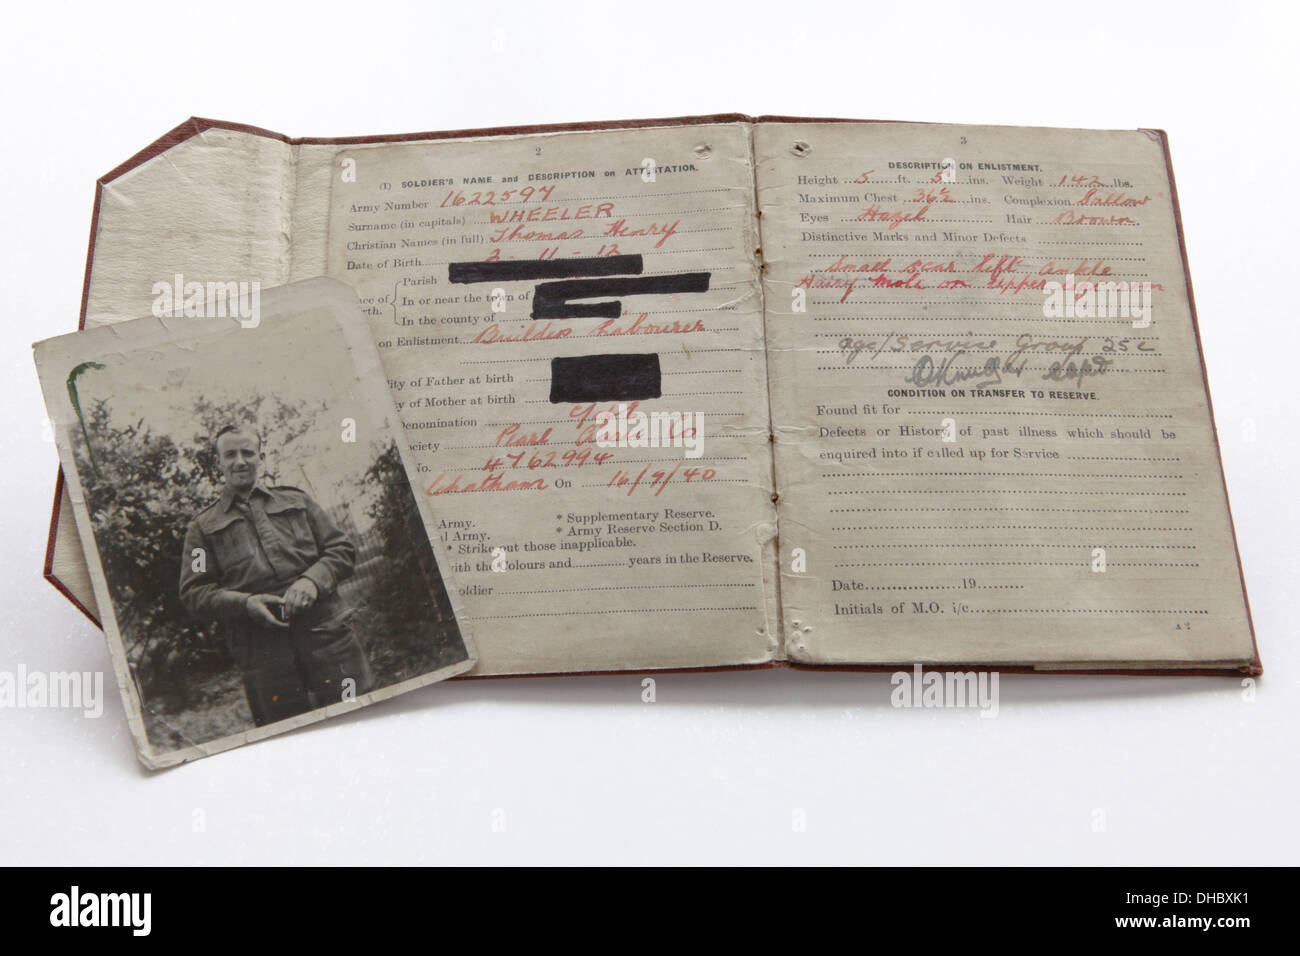 2
(1) SOLDIER'S NAME and DESCRIPTION on ATTESTATION.
Army Number 1622597
Surname (in capitals) WHEELER
Christian Names (in full) Thomas Henry
Date of Birth 2-11-12
Parish
In or near the town of
In the county of
on Enlistment Builders Labourer
ity of Father at birth
y of Mother at birth
Denomination C of E
ociety Pearl Assce Co
No. 4762994
Chatham On 16/9/40
Army. * Supplementary Reserve.
l Army. * Army Reserve Section D.
* Strike out those inapplicable.
with the Colours and years in the Reserve.
oldier
3
DESCRIPTION ON ENLISTMENT.
Height 5 ft. 5 ins. Weight 142 lbs.
Maximum Chest 36½ ins. Complexion Sallow
Eyes Hazel Hair Brown
Distinctive Marks and Minor Defects
Small scar left ankle
Hairy mole on upper
age/Service Group 25c
Capt
CONDITION ON TRANSFER TO RESERVE.
Found fit for
Defects or History of past illness which should be
enquired into if called up for Service
Date 19
Initials of M.O. i/c
A 2
alamy
Image ID: DHBXK1
www.alamy.com